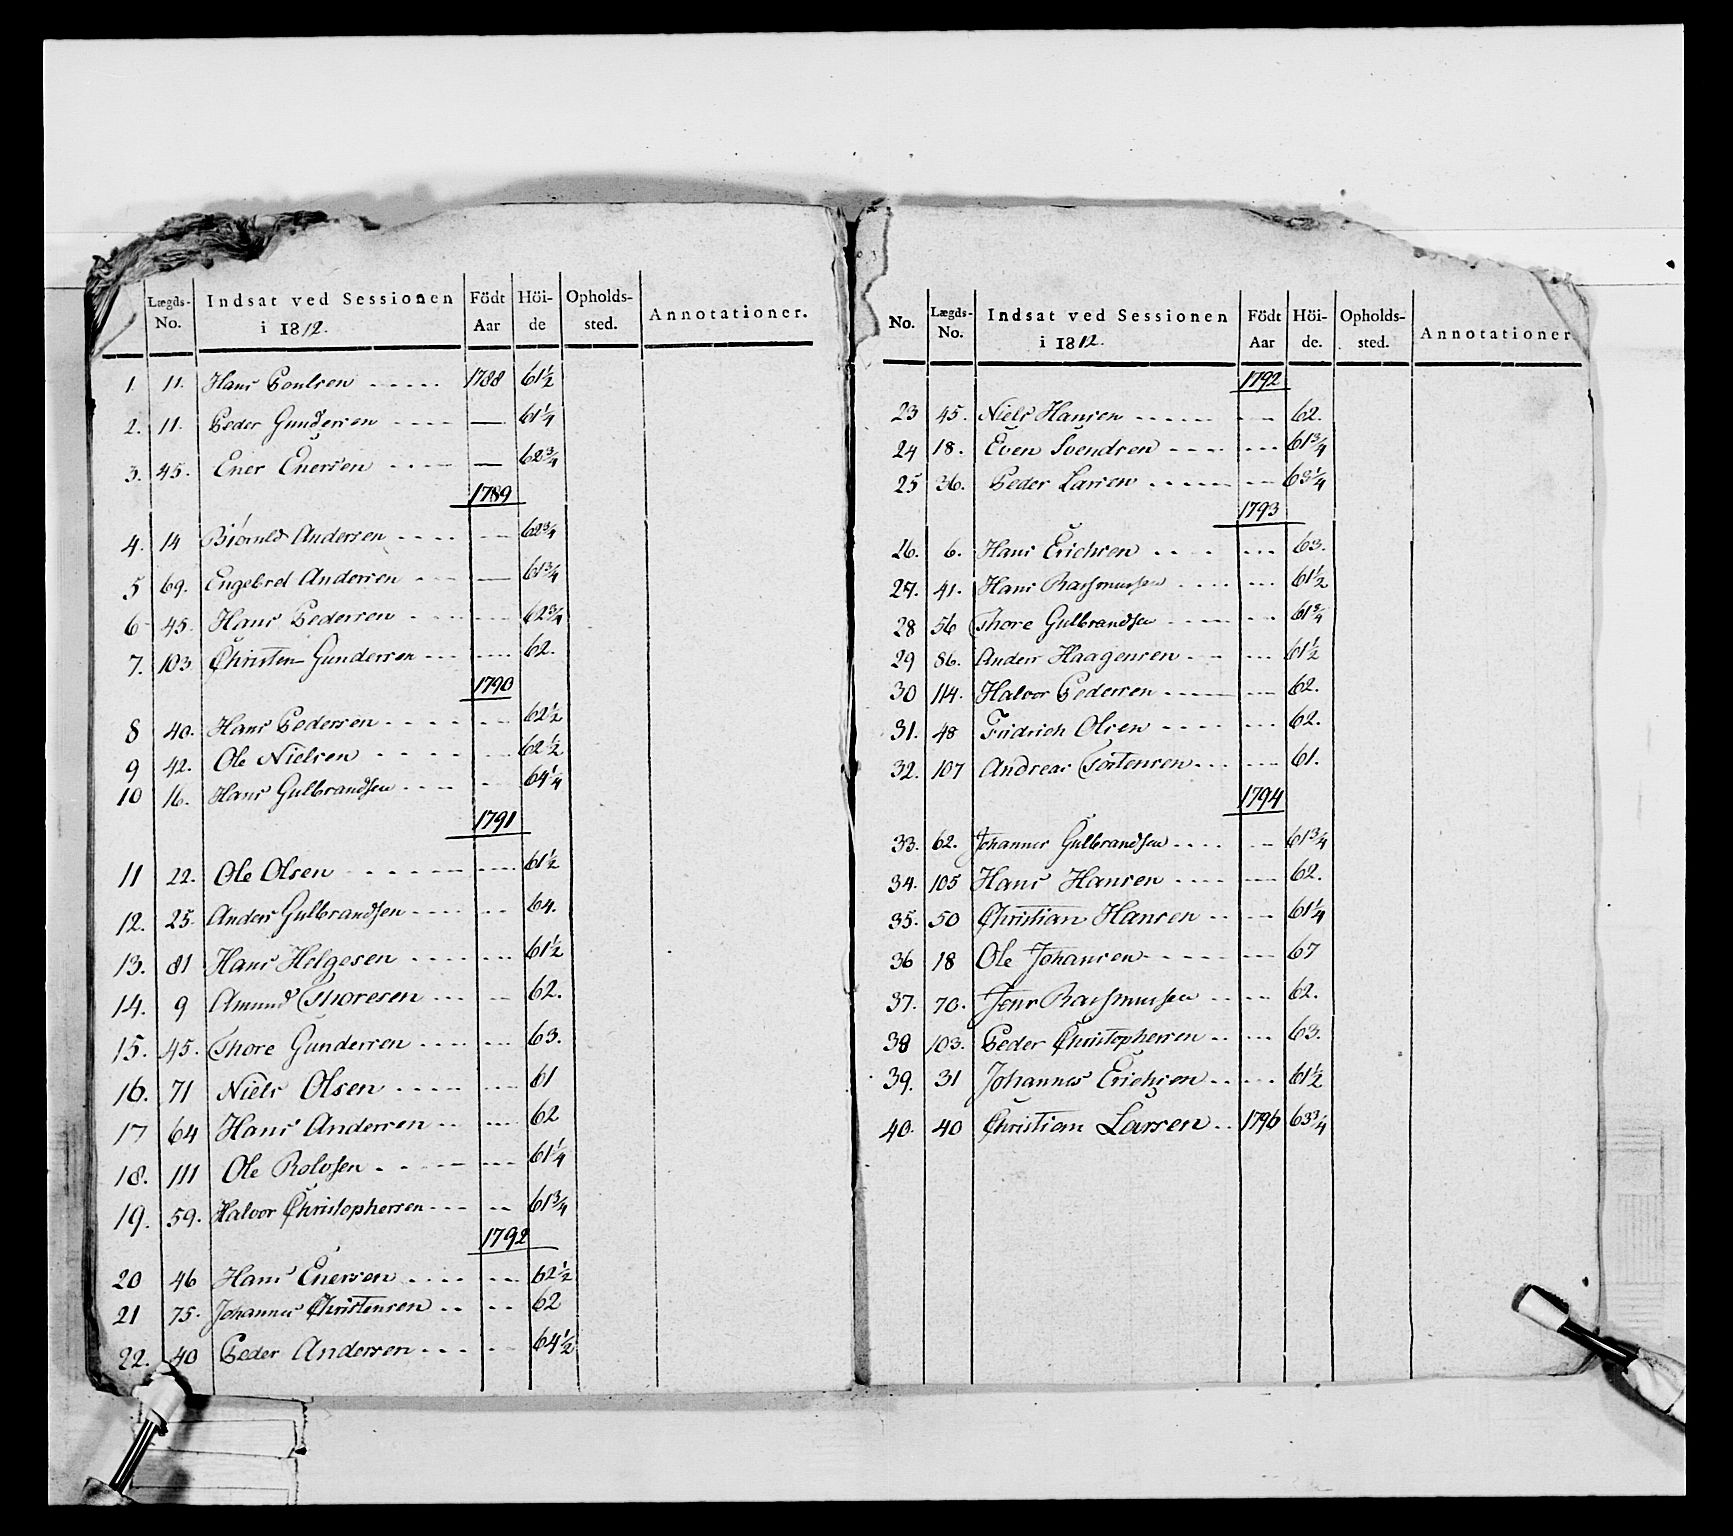 Lægds-No. Indsat ved Sessionen i 1812. Födt Aar Höi-de Opholds-sted. Annotationer.
1. 11. Hans Poulsen - - - - - 1788 61½
2. 11. Peder Gundersen - - - - — 61¼
3. 45. Ener Enersen - - - - — 62¾
1789
4. 14 Biörnld Andersen - - - - - - 62¾
5 69. Engebret Andersen - - - — 61¾
6 45. Hans Pedersen - - - - - - 62¾
7. 103 Christen Gundersen - - - - - - 62.
1790
8 40. Hans Pedersen - - - - - - 62½
9 42. Ole Nielsen - - - - - - 62½
10 16. Hans Gulbrandsen - - - - - - 64¼
1791
11 22. Ole Olsen - - - - - - - - - 61½
12. 25. Anders Gulbrandsen - - - - - - 64.
13. 81 Hans Helgesen - - - - - - - 61½
14. 9 Amund Thoresen - - - - - 62.
15. 45. Thore Gundersen - - - - - - - 63.
16. 71 Niels Olsen - - - - - - - 61
17 64 Hans Andersen - - - - - 62
18. 111 Ole Rolvsen - - - - - - - - 61¼
19. 59. Halvor Christophersen - - - - - 61¾
1792
20 46 Hans Enersen - - - - - - - 62½
21 75. Johannes Christensen - - - - 62
22. 40 Peder Andersen - - - - - 64½
No. Lægds-No. Indsat ved Sessionen i 1812. Födt Aar Höi-de. Opholds-sted. Annotationer
1792
23 45. Niels Hansen - - - - - - - 62.
24 18. Even Svendsen - - - - - - - 61¾
25 36. Peder Larsen - - - - - - - 63¼
1793
26. 6. Hans Erichsen - - - - - - - 63.
27. 41. Hans Rasmussen - - - - - - - 61½
28 56 Thore Gulbrandsen - - - - - - 61¾
29 86. Anders Haagensen - - - - - - 61½
30 114. Halvor Pedersen - - - - - - - 62.
31. 48 Fridrich Olsen - - - - - - - 62.
32. 107 Andreas Torstensen - - - - - - 61.
1794
33. 62. Johannes Gulbrandsen - - - - - - 61¾
34. 105 Hans Hansen - - - - - - - 62.
35. 50 Christian Hansen - - - - - 61¼
36 18 Ole Johansen - - - - - - - - - 67
37. 70. Jens Rasmussen - - - - 62.
38 103. Peder Christophersen - - - - - 63.
39. 31 Johannes Erichsen - - - - - 61½
40. 40 Christian Larsen - - 1796 63¾